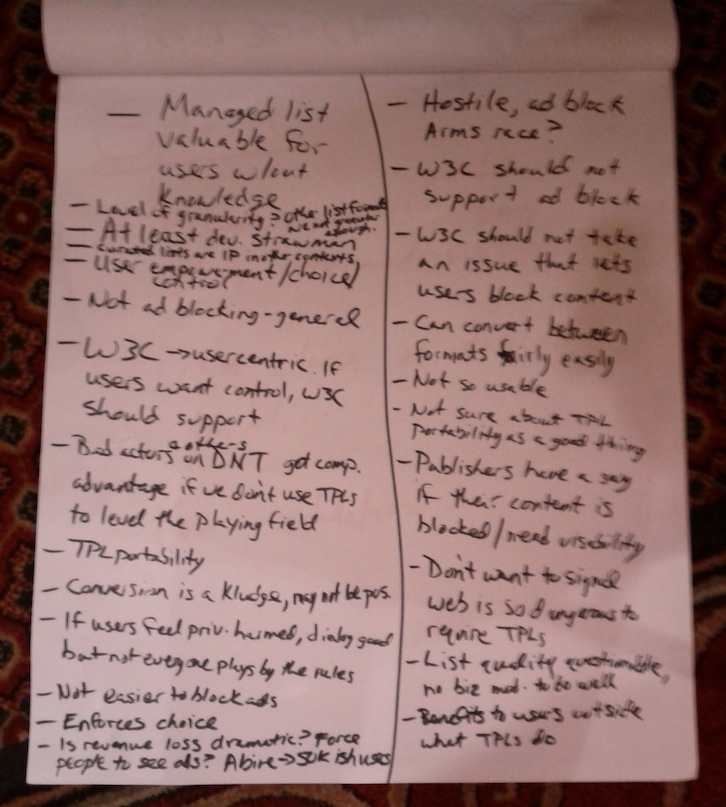 — Managed list
valuable for
users w/out
knowledge
— Level of granularity? Other list formats
are not granular
enough.
— At least dev. strawman
— Curated lists are IP in other contexts
— User empowerment/choice/
control
— Not ad blocking-general
— W3C → usercentric. If
users want control, W3C
should support
& others
— Bad actors on DNT get comp.
advantage if we don't use TPLs
to level the playing field
— TPL portability
— Conversion is a kludge, may not be pos.
— If users feel priv. harmed, dialog good
but not everyone plays by the rules
— Not easier to block ads
— Enforces choice
— Is revenue loss dramatic? Force
people to see ads? Abine →
— Hostile, ad block
Arms race?
— W3C should not
support ad block
— W3C should not take
an issue that lets
users block content
— Can convert between
formats fairly easily
— Not so usable
— Not sure about TPL
portability as a good thing
— Publishers have a say
if their content is
blocked/need visibility
— Don't want to signal
web is so dangerous to
require TPLs
— List quality questionable,
no biz mod. to be well
— Benefits to users outside
what TPLs do